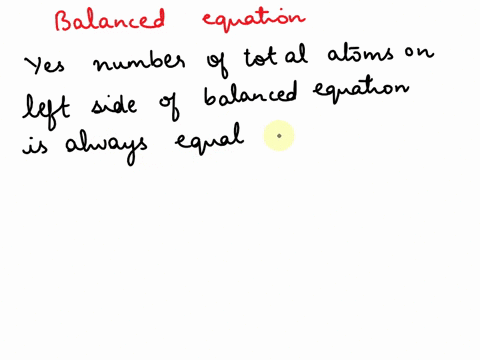 Balanced equation
Yes number of total atoms on
left side of balanced equation
is always equal